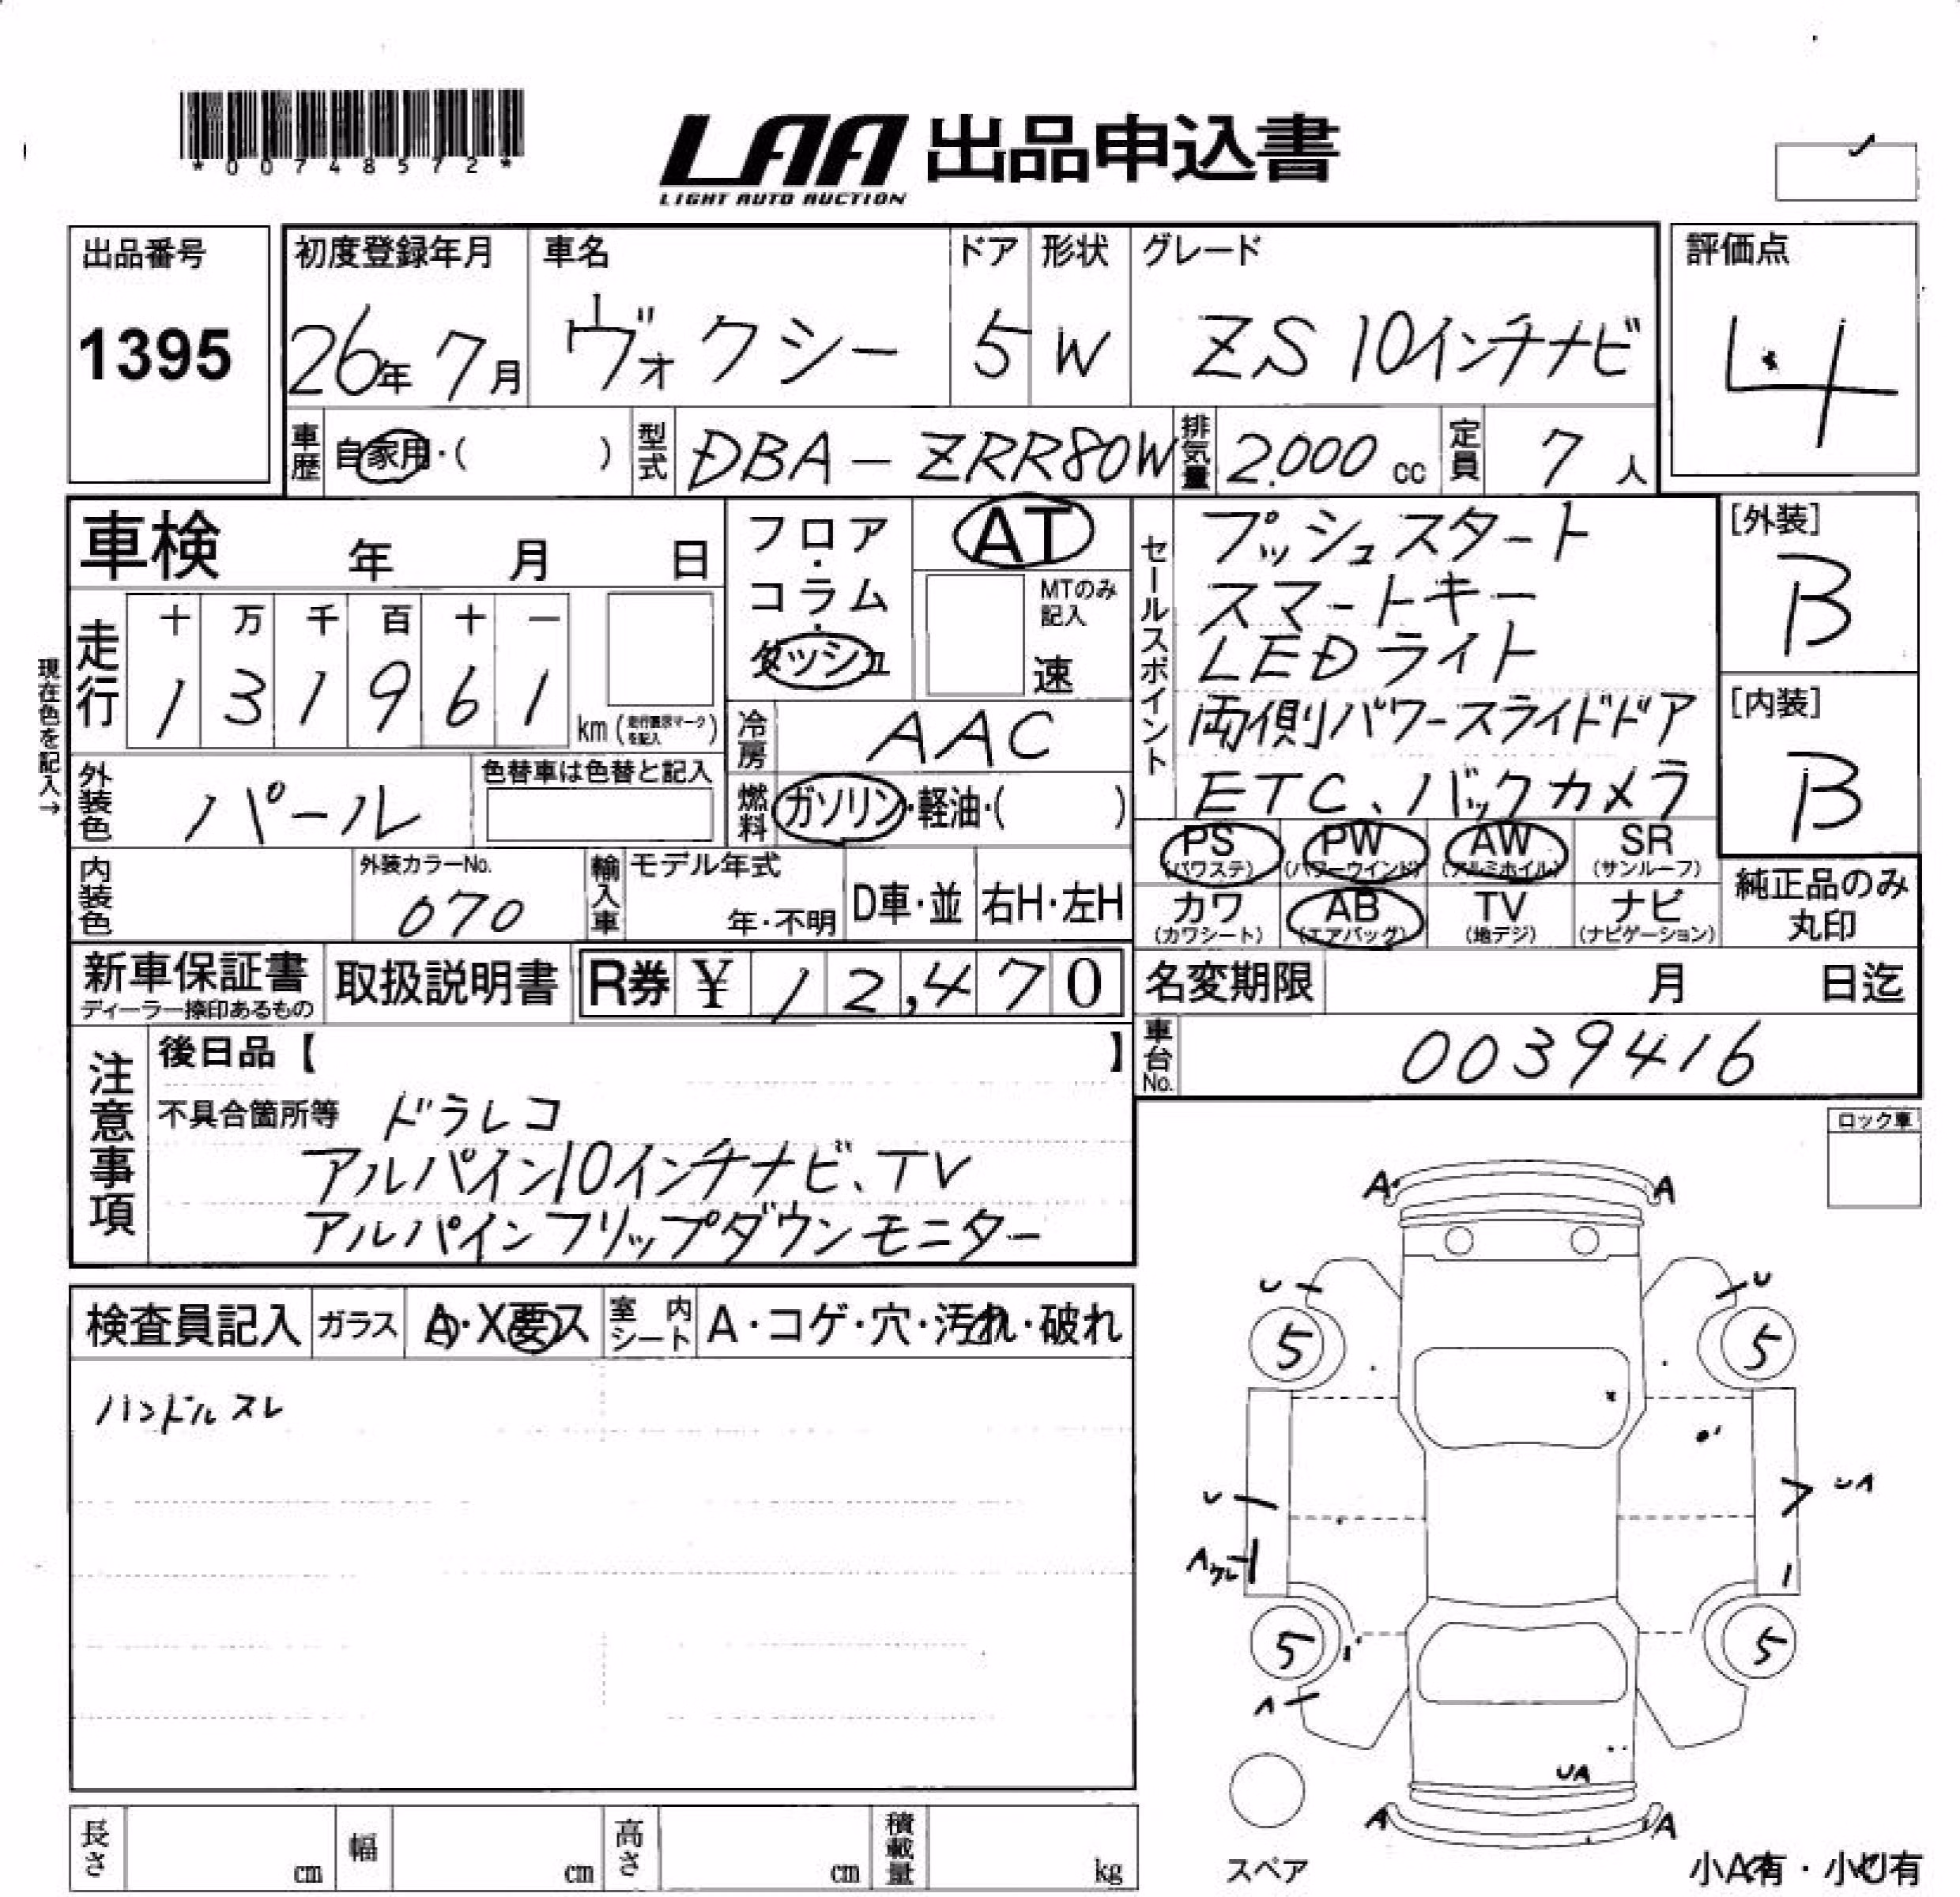 *00748572*
LAA 出品申込書
LIGHT AUTO AUCTION
出品番号
1395
初度登録年月
26年 7月
車名
ヴォクシー
ドア
5
形状
W
グレード
ZS 10インチナビ
評価点
4
車歴
自家用・( )
型式
DBA-ZRR80W
排気量
2.000 cc
定員
7 人
車検 年 月 日
フロア・コラム・ダッシュ
AT
MTのみ記入
速
走行
十 万 千 百 十 一
1 3 1 9 6 1
km (走行表示マークを記入)
現在色を記入→
冷房
AAC
外装色
パール
色替車は色替と記入
燃料
ガソリン・軽油・( )
セールスポイント
プッシュスタート
スマートキー
LEDライト
両側パワースライドドア
ETC、バックカメラ
[外装]
B
[内装]
B
内装色
外装カラーNo.
070
輸入車
モデル年式
年・不明
D車・並
右H・左H
PS (パワステ)
PW (パワーウインド)
AW (アルミホイル)
SR (サンルーフ)
カワ (カワシート)
AB (エアバッグ)
TV (地デジ)
ナビ (ナビゲーション)
純正品のみ
丸印
新車保証書
ディーラー捺印あるもの
取扱説明書
R券 ¥ 12,470
名変期限 月 日迄
車台No.
0039416
注意事項
後日品【 】
不具合箇所等 ドラレコ
アルパイン10インチナビ、TV
アルパインフリップダウンモニター
ロック車
検査員記入
ガラス
A・X要ス
室内シート
A・コゲ・穴・汚れ・破れ
ハンドルスレ
A A
U U
5 5
U UA
A
5 5
A
UA
A A
スペア
小A有・小U有
長さ cm
幅 cm
高さ cm
積載量 kg